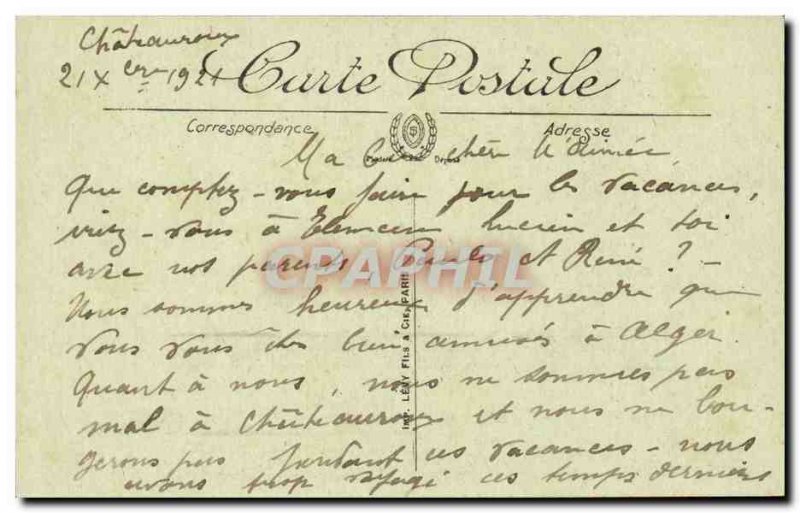 Châteauroux
21 Xbre 1921
Carte Postale
Correspondance
Adresse
Ma chère Aimée
Que comptez-vous faire pour les vacances,
irez-vous à Tlemcen Lucien et toi
avec vos parents, Paulo et René ? -
Nous sommes heureux d'apprendre que
vous vous êtes bien amusés à Alger.
Quant à nous, nous ne sommes pas
mal à Châteauroux et nous ne bou-
gerons pas pendant ces vacances - nous
avons trop voyagé ces temps derniers
IMP. LÉVY FILS & CIE, PARIS
CPAPHIL